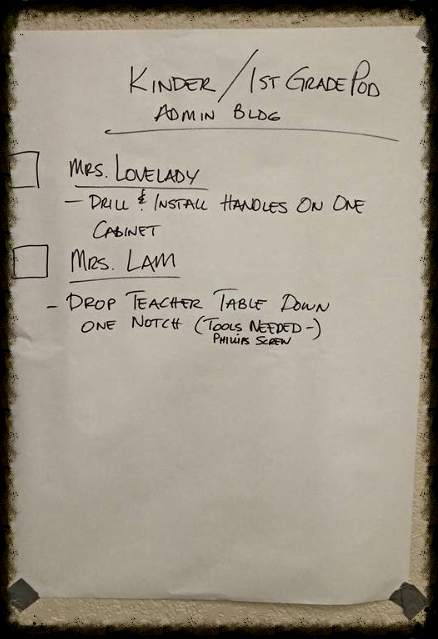 KINDER / 1ST GRADE POD
ADMIN BLDG
MRS. LOVELADY
- DRILL & INSTALL HANDLES ON ONE
CABINET
MRS. LAM
- DROP TEACHER TABLE DOWN
ONE NOTCH (TOOLS NEEDED-)
PHILLIPS SCREW